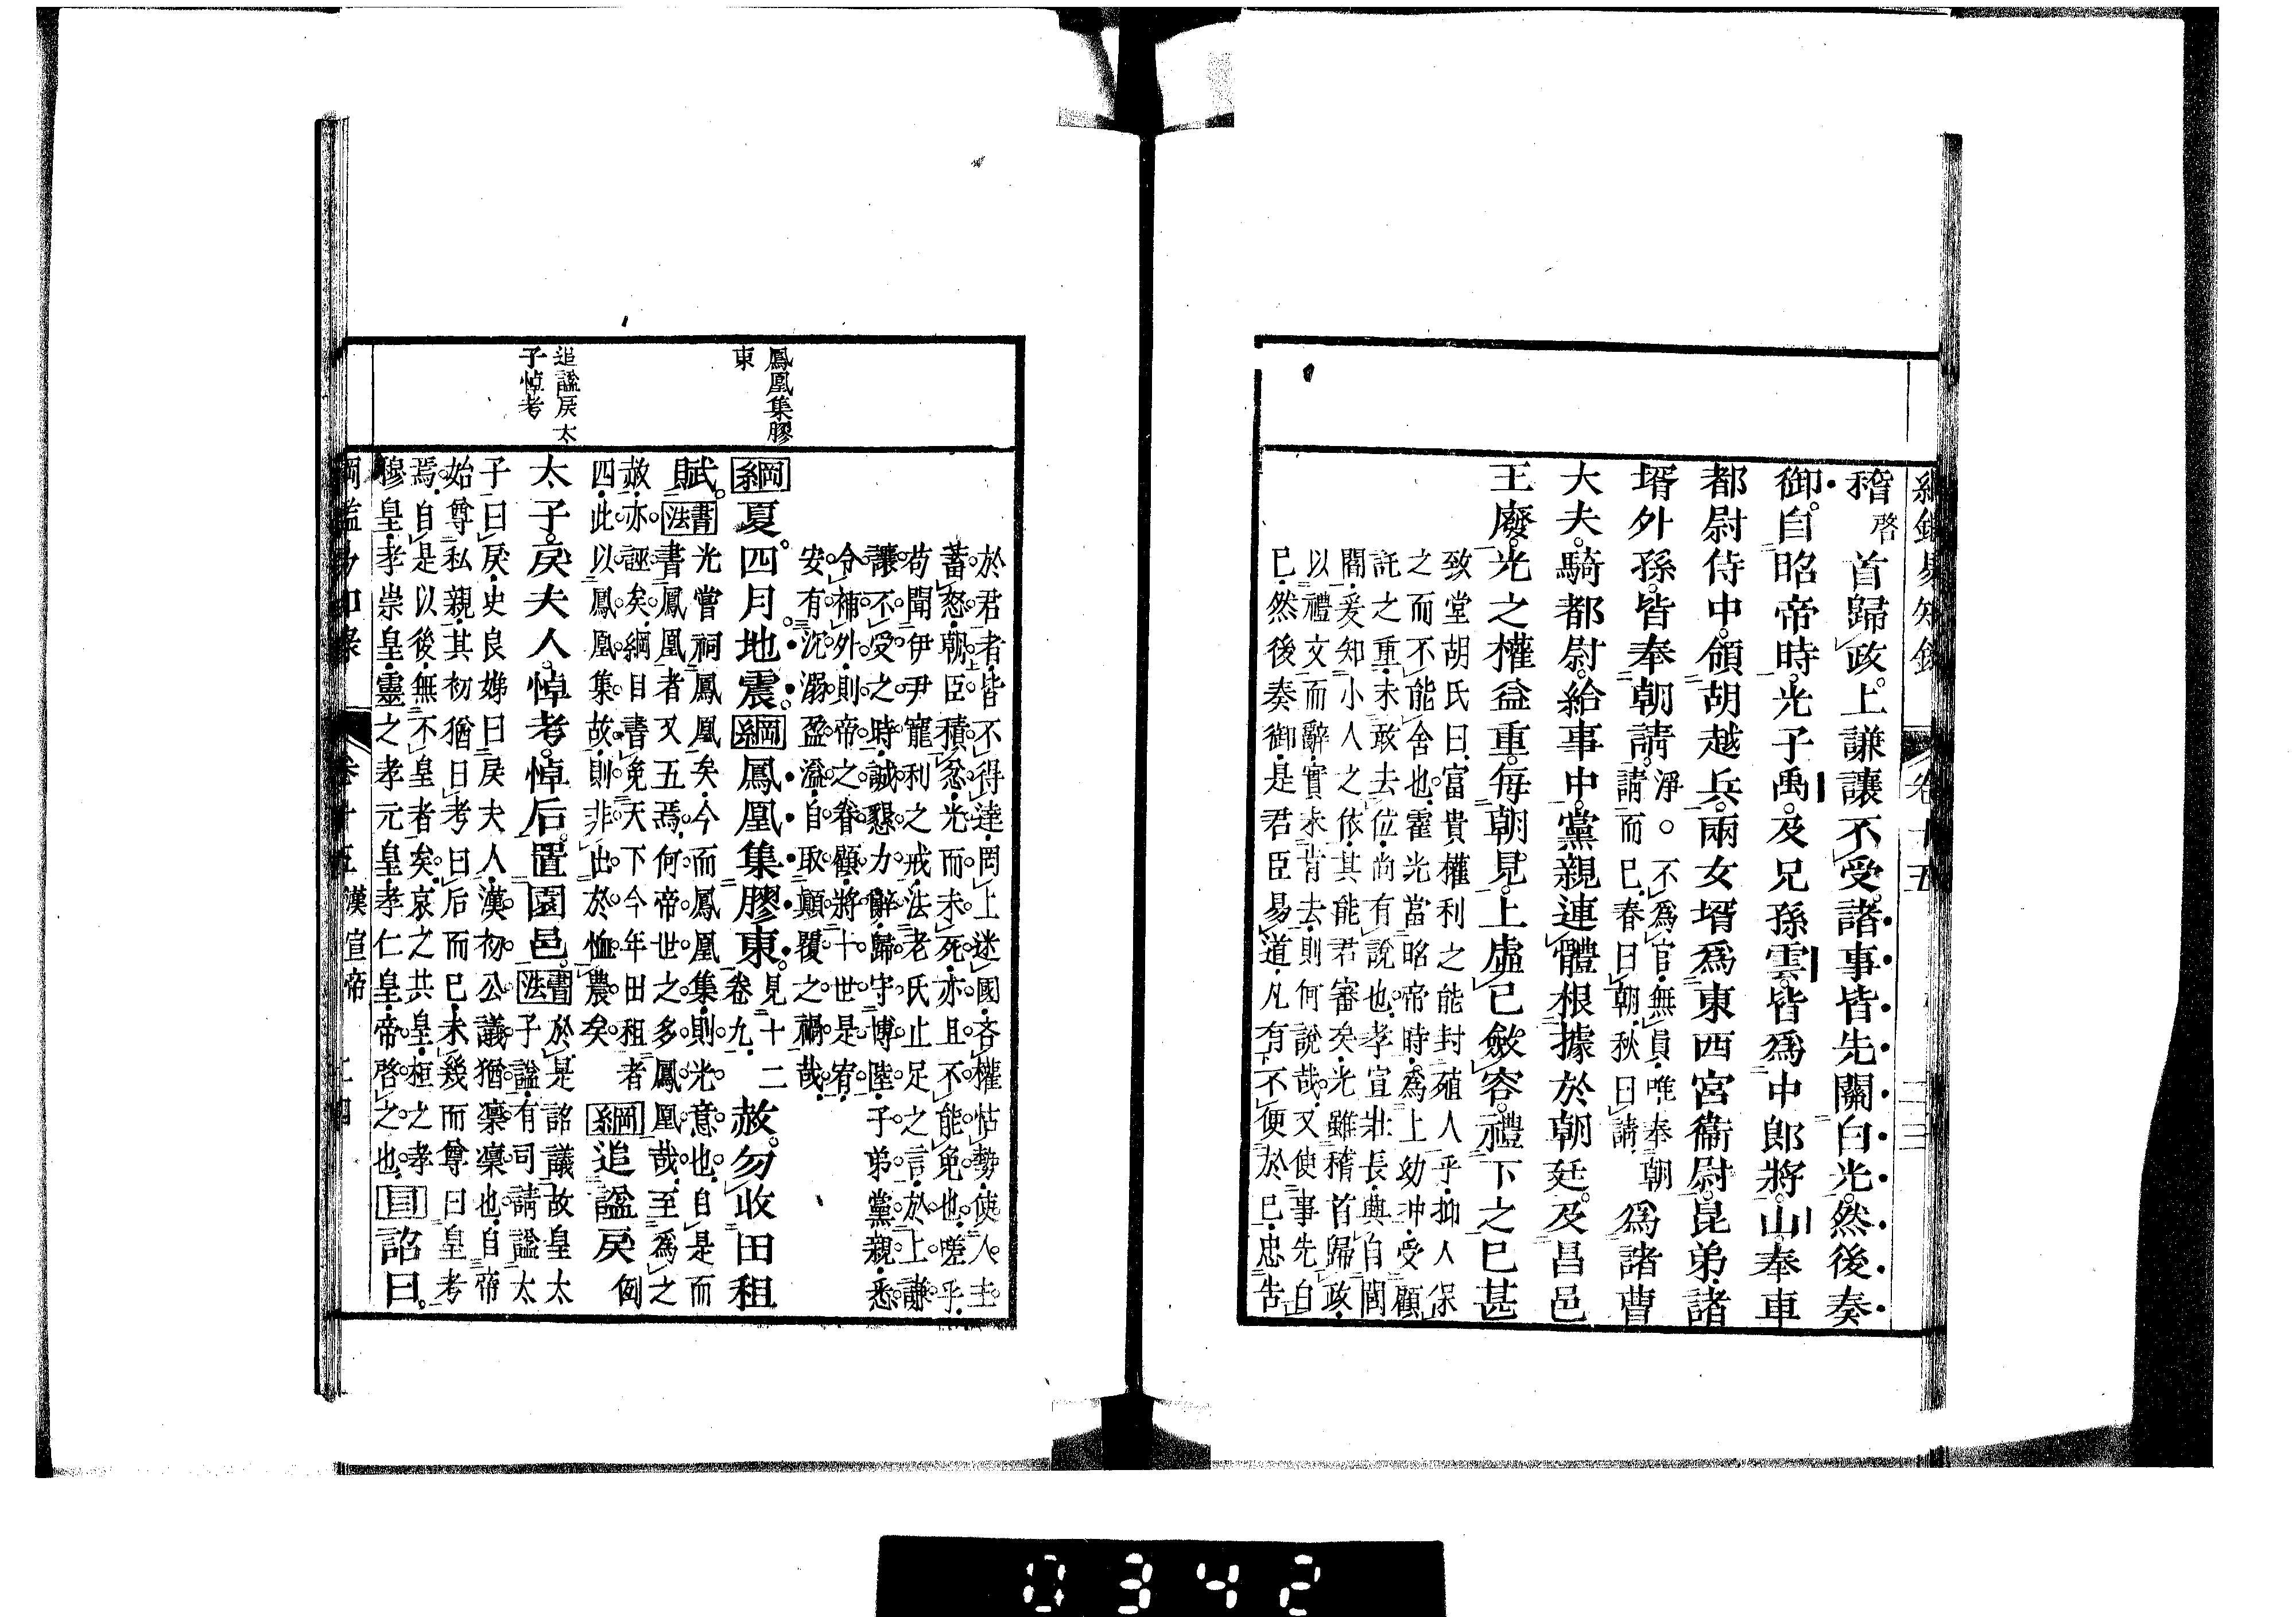 稽啓首歸政。上謙讓不受。諸事皆先關白光。然後奏
御。自昭帝時。光子禹。及兄孫雲。皆爲中郎將。山奉車
都尉侍中。領胡越兵。兩女壻爲東西宮衞尉。昆弟諸
壻外孫。皆奉朝請。
淨。○不爲官無員。唯奉朝
請而已。春曰朝。秋曰請。
爲諸曹
大夫。騎都尉。給事中。黨親連體。根據於朝廷。及昌邑
王廢。光之權益重。每朝見。上虛已斂容。禮下之已甚
致堂胡氏曰。富貴權利之能封殖人乎。抑人保
之而不能舍也。霍光當昭帝時。爲上幼沖。受顧
託之重。未敢去位。尚有說也。孝宣壯長。與自閭
閻。爰知小人之依。其能君審矣。光雖稽首歸政。
以禮文而辭。實未肯去。則何說哉。又使事先白
已。然後奏御。是君臣易道。凡有不便於已。忠告
於君者。皆不得達。罔上迷國。吝權怙勢。使人主
蓄怒。朝臣積忿。光而未死。亦且不能免也。嗟乎。
苟聞伊尹寵利之戒。法老氏止足之言。於上謙
讓不受之時。誠懇力辭。歸守博陸。子弟黨親。悉
令補外。則帝之眷顧。將十世是宥。
安有沉溺盈溢。自取顛覆之禍哉。
鳳凰集膠
東
綱夏。四月。地震。綱鳳凰集膠東。
見十二
卷九。
赦。勿收田租
賦。書法
光嘗祠鳳凰矣。今而鳳凰集。則光意也。自是而
書鳳凰者又五焉。何帝世之多鳳凰哉。至爲之
赦。亦誣矣。綱目書免天下今年田租者
四。此以鳳凰集故。則非出於恤農矣
綱追諡戾
例
追諡戾太
子悼考
太子。戾夫人。悼考。悼后。置園邑。書法
於是詔議故皇太
子諡。有司請諡太
子曰戾。史良娣曰戾夫人。漢初公議。猶凜凜也。自帝
始尊私親。其初猶曰考曰后而已。未幾而尊曰皇考
焉。自是以後。無不皇者矣。哀之共皇。桓之孝
穆皇。孝崇皇。靈之孝元皇。孝仁皇。帝啓之也。
目詔曰。
卷十五 漢宣帝
0342